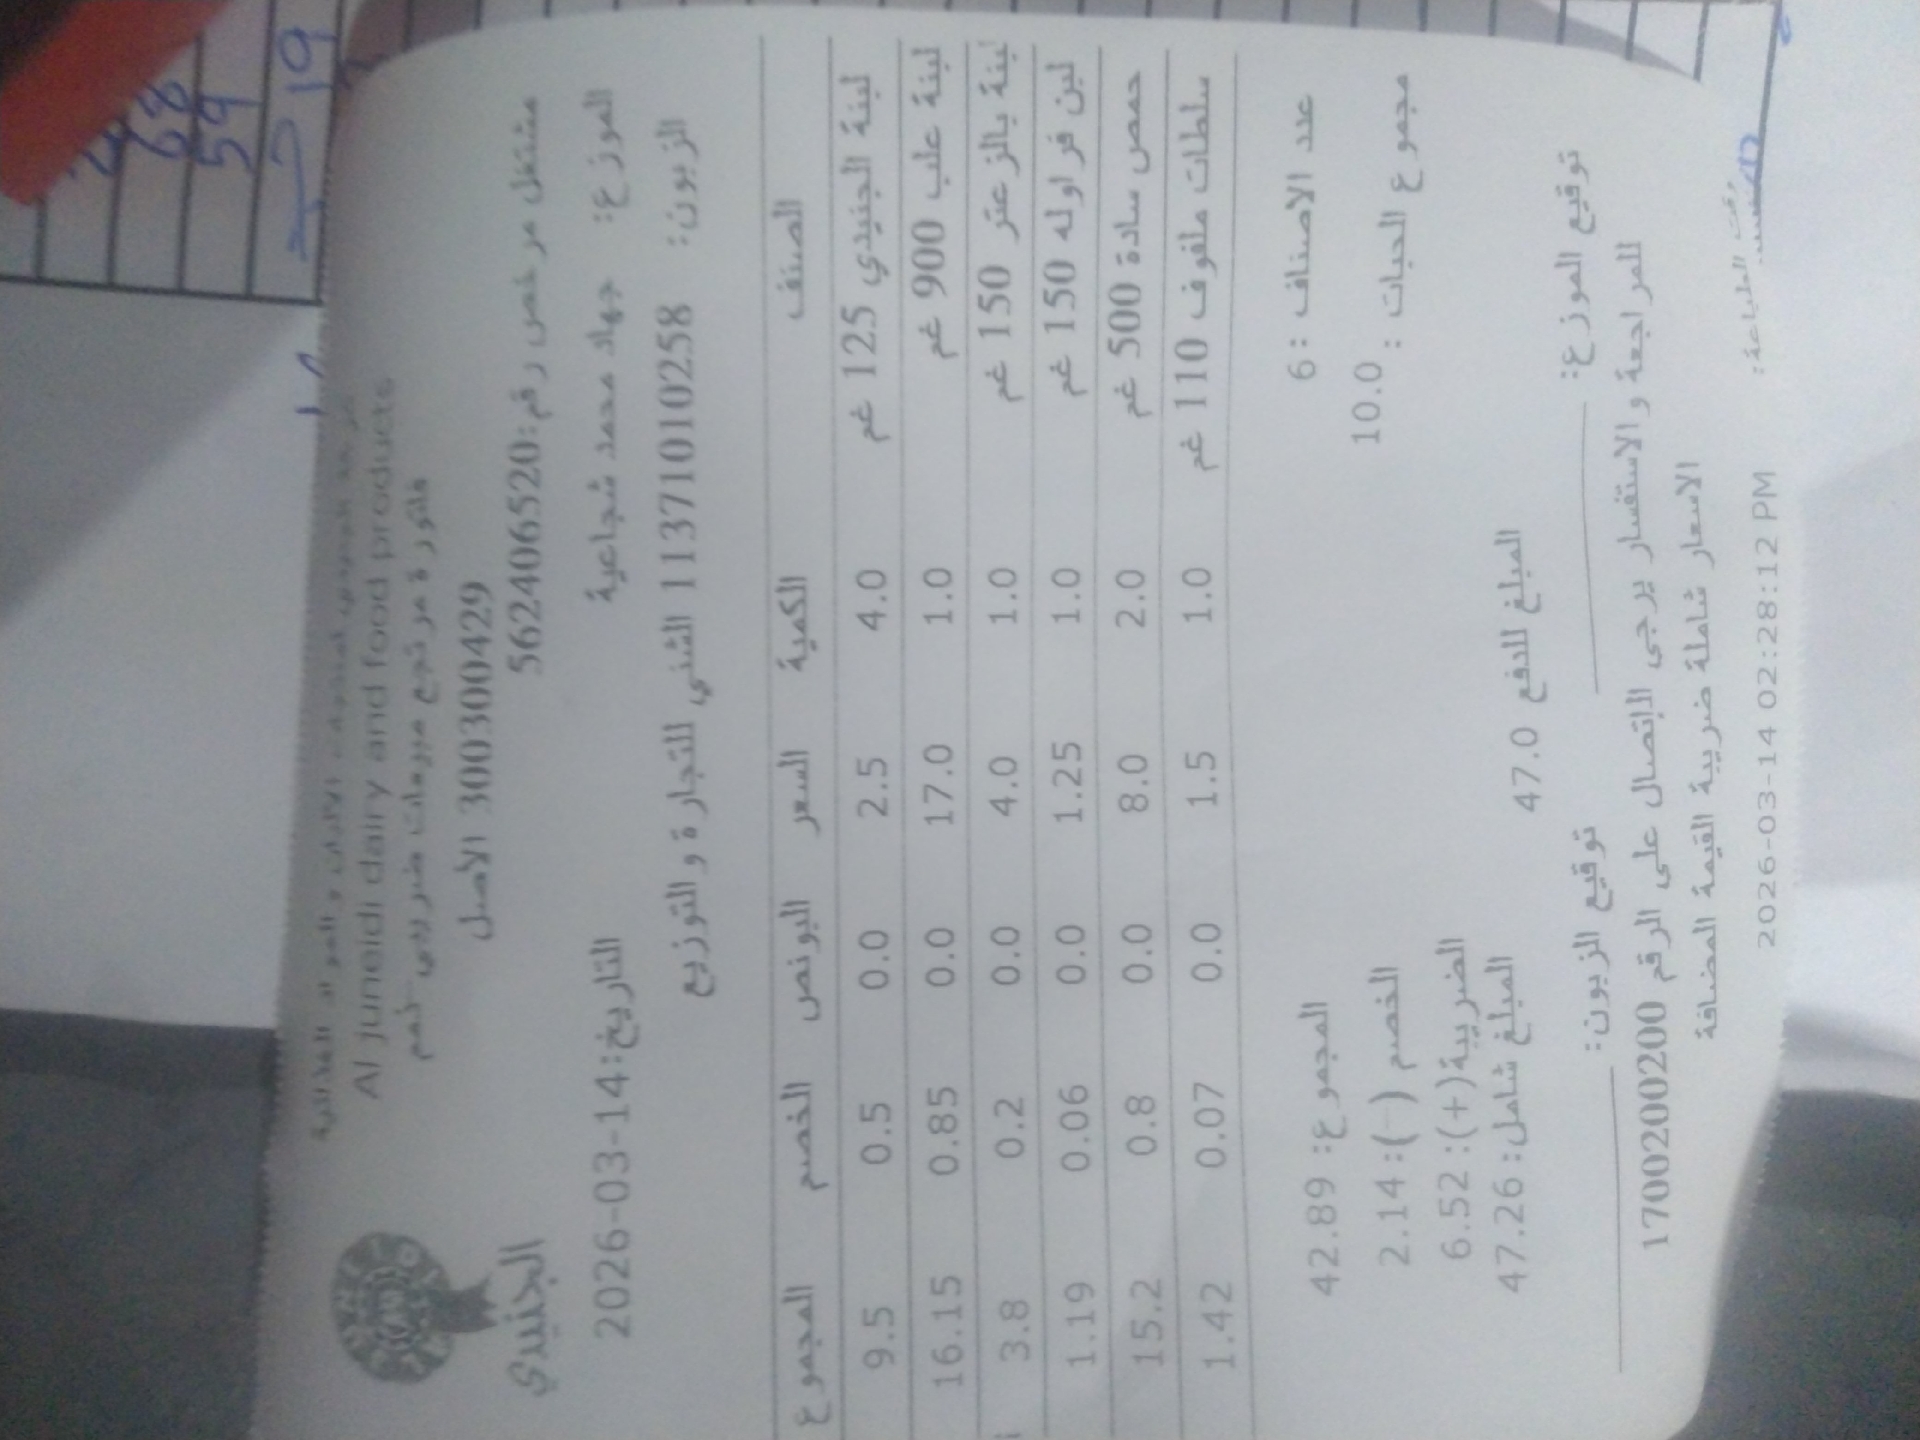 الجنيدي
Al juneidi dairy and food products
فاتورة مرتجع مبيعات ضريبي خصم
3003000429 الأصل
مشتغل مرخص رقم:562406520
الموزع: جهاد محمد شجاعية
التاريخ:2026-03-14
الزبون: 1137101010258 الشني للتجارة والتوزيع
الصنف الكمية السعر البونص الخصم المجموع
لبنة الجنيدي 125 غم 4.0 2.5 0.0 0.5 9.5
لبنة علب 900 غم 1.0 17.0 0.0 0.85 16.15
لبنة بالزعتر 150 غم 1.0 4.0 0.0 0.2 3.8
لبن فراوله 150 غم 1.0 1.25 0.0 0.06 1.19
حمص سادة 500 غم 2.0 8.0 0.0 0.8 15.2
سلطات ملفوف 110 غم 1.0 1.5 0.0 0.07 1.42
عدد الاصناف : 6
المجموع: 42.89
مجموع الحبات : 10.0
الخصم (-): 2.14
الضريبة(+): 6.52
المبلغ للدفع 47.0
المبلغ شامل: 47.26
توقيع الموزع:
توقيع الزبون:
للمراجعة والاستفسار يرجى الإتصال على الرقم 1700200200
الاسعار شاملة ضريبة القيمة المضافة
2026-03-14 02:28:12 PM
68
59